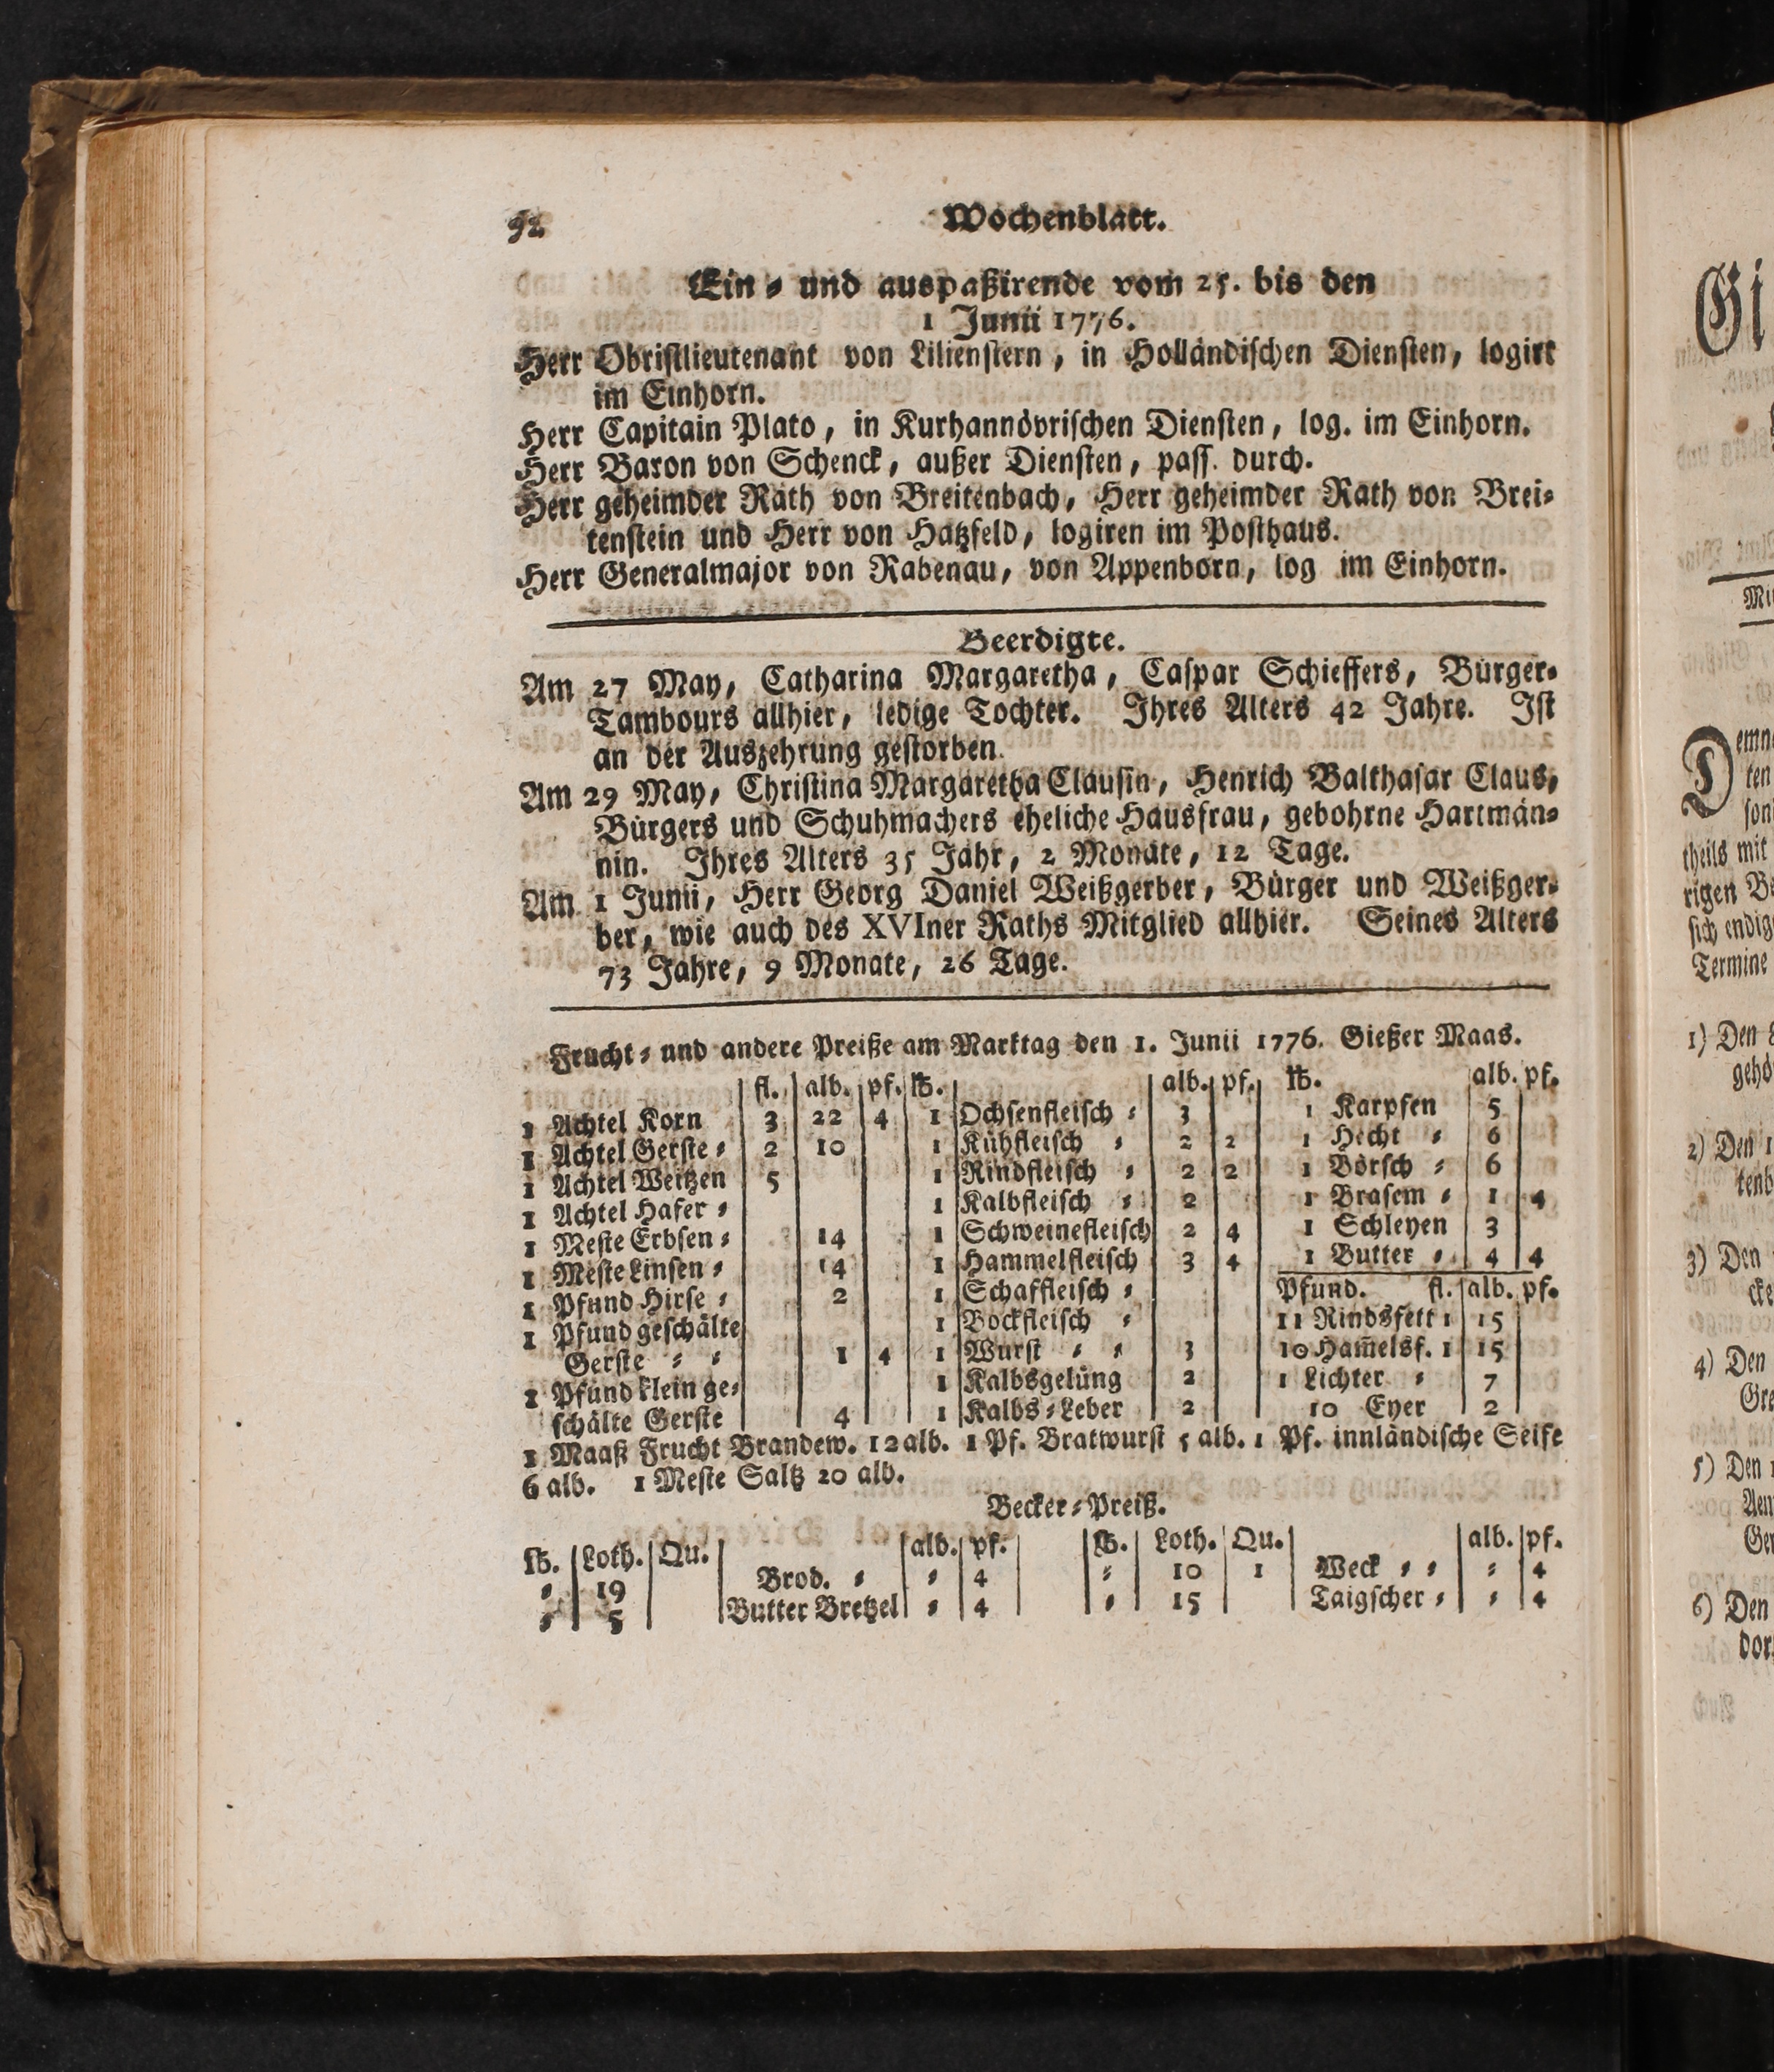 92 Wochenblatt.
Ein- und auspaßirende vom 25. bis den
1 Junii 1776.
Herr Obristlieutenant von Lilienstern, in Holländischen Diensten, logirt
im Einhorn.
Herr Capitain Plato, in Kurhannövrischen Diensten, log. im Einhorn.
Herr Baron von Schenck, außer Diensten, pass. durch.
Herr geheimder Rath von Breitenbach, Herr geheimder Rath von Brei-
tenstein und Herr von Hatzfeld, logiren im Posthaus.
Herr Generalmajor von Rabenau, von Appenborn, log im Einhorn.
Beerdigte.
Am 27 May, Catharina Margaretha, Caspar Schieffers, Bürger-
Tambours allhier, ledige Tochter. Ihres Alters 42 Jahre. Ist
an der Auszehrung gestorben.
Am 29 May, Christina Margaretha Clausin, Henrich Balthasar Claus,
Bürgers und Schuhmachers eheliche Hausfrau, gebohrne Hartmän-
nin. Ihres Alters 35 Jahr, 2 Monate, 12 Tage.
Am 1 Junii, Herr Georg Daniel Weißgerber, Bürger und Weißger-
ber, wie auch des XVIner Raths Mitglied allhier. Seines Alters
73 Jahre, 9 Monate, 26 Tage.
Frucht- und andere Preiße am Marktag den 1. Junii 1776. Gießer Maas.
fl. alb. pf.
1 Achtel Korn 3 22 4
1 Achtel Gerste - 2 10
1 Achtel Weitzen 5
1 Achtel Hafer -
1 Meste Erbsen - 14
1 Meste Linsen - 14
1 Pfund Hirse - 2
1 Pfund geschälte
Gerste - - 1 4
1 Pfund klein ge-
schälte Gerste 4
℔. alb. pf.
1 Ochsenfleisch - 3
1 Kühfleisch - 2 2
1 Rindfleisch - 2 2
1 Kalbfleisch - 2
1 Schweinefleisch 2 4
1 Hammelfleisch 3 4
1 Schaffleisch -
1 Bockfleisch -
1 Wurst - - 3
1 Kalbsgelüng 2
1 Kalbs-Leber 2
℔. alb. pf.
1 Karpfen 5
1 Hecht - 6
1 Börsch - 6
1 Brasem - 1 4
1 Schleyen 3
1 Butter - 4 4
Pfund. fl. alb. pf.
11 Rindsfett 1 15
10 Ham̄elsf. 1 15
1 Lichter - 7
10 Eyer 2
1 Maaß Frucht Brandew. 12 alb. 1 Pf. Bratwurst 5 alb. 1 Pf. innländische Seife
6 alb. 1 Meste Saltz 20 alb.
Becker-Preiß.
℔. Loth. Qu. alb. pf. ℔. Loth. Qu. alb. pf.
- 19 Brod. - - 4 - 10 1 Weck - - - 4
- 5 Butter Bretzel - 4 - 15 Taigscher - - 4
Gi
emn
ten
theils mit
rigen Be
sich endig
Termine
1) Den
gehö
2) Den 1
tenb
3) Den
cke
4) Den
Gre
5) Den
Aem
Ger
6) Den
dor